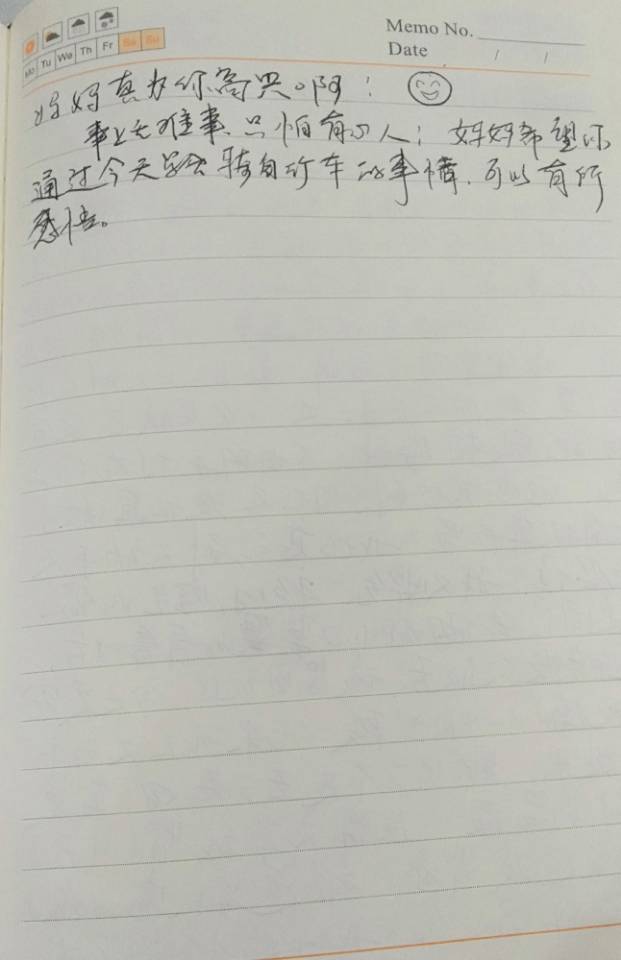 Memo No.
Mo Tu We Th Fr Sa Su
Date / /
妈妈真为你高兴。啊!
事上无难事,只怕有心人;妈妈希望你
通过今天学会骑自行车的事情,可以有所
感悟。